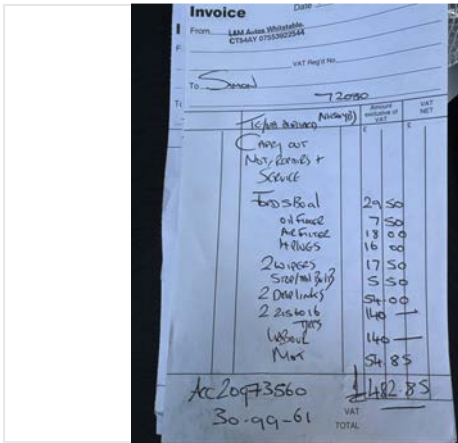 Invoice
Date
From L&M Autos Whitstable.
CT54AY 07553922544
VAT Reg'd No.
To Simon
72080
Amount exclusive of VAT
VAT NET
£
£
CARRY OUT
MOT, REPAIRS +
SERVICE
29 50
OIL FILTER 7 50
AIR FILTER 18 00
4 PLUGS 16 00
2 WIPERS 17 50
STOP/TAIL BULB 5 50
2 DROP LINKS 54.00
2 2156016 140 —
TYRES
LABOUR 140 —
MOT 54.85
Acc 20973560 £482.85
30-99-61
VAT
TOTAL